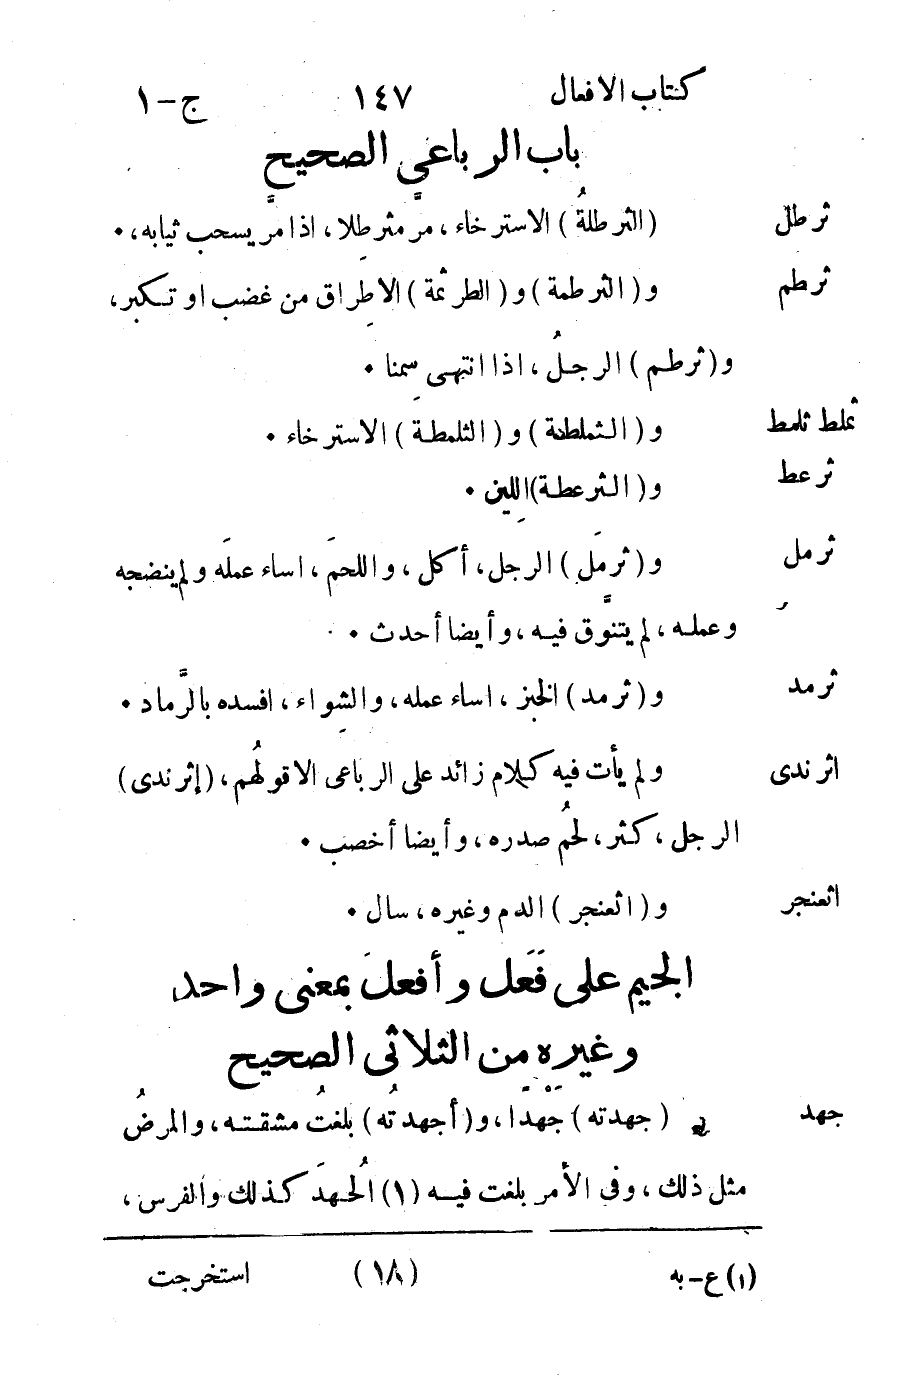 كتاب الافعال ١٤٧ ج-١
باب الرباعيّ الصحيح
ثرطل (الثرطلةُ) الاسترخاء، مرّ مثرطِلا، اذا مرّ يسحب ثيابه،٠
ثرطم و(الثرطمة) و(الطرثمة) الاطِراق من غضب او تكبر،
و(ثرطم) الرجلُ، اذا انتهى سِمنا ٠
ثملط ثلمط و(الثملطة) و(الثلمطة) الاسترخاء ٠
ثرعط و(الثرعطة) اللِين ٠
ثرمل و(ثرمَل) الرجل، أكل، واللحمَ، اساء عملَه ولم ينضجه
وعمله، لم يتنوَّق فيه، وأيضا أحدث ٠
ثرمد و(ثرمد) الخبز، اساء عمله، والشِواء، افسده بالرَّماد ٠
اثرندى ولم يأت فيه كلام زائد على الرباعى الا قولهُم، (إثرندى)
الرجل، كثر، لحمُ صدره، وأيضا أخصب ٠
اثعنجر و(اثعنجر) الدم وغيره، سال ٠
الجيم على فَعَل وأفعلَ بمعنى واحد
وغيره من الثلاثى الصحيح
جهد (جهدته) جَهْدًا، و(أجهدتُه) بلغتُ مشقته، والمرضُ
مثل ذلك، وفى الأمر بلغت فيه (١) الُجهدَ كذلك والفرس،
(١) ع-به (١٨) استخرجت